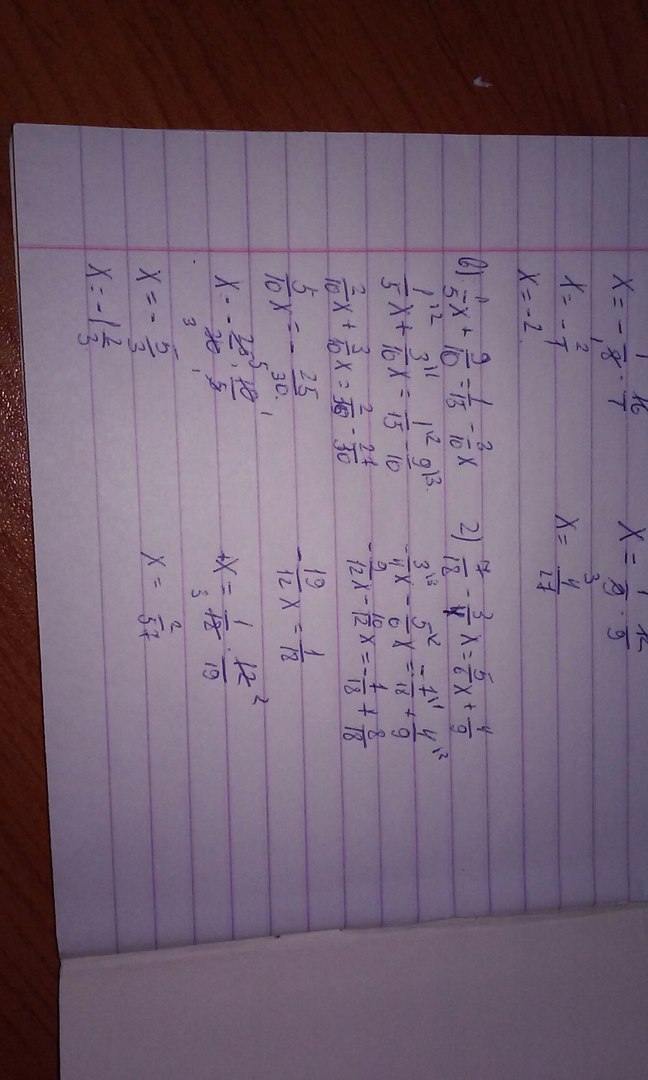 x = - 1/8 · 16/1
x = - 2/1
x = -2
x = 1/9 · 12/9
x = 4/27
в) 1/5 x + 9/10 = 1/15 - 3/10 x
1/5 x + 3/10 x = 1/15 - 9/10
2/10 x + 3/10 x = 2/30 - 27/30
5/10 x = - 25/30
x - 25/30 · 10/5
x = - 5/3
x = -1 2/3
2) 7/18 - 3/4 x = 5/6 x + 4/9
- 3/4 x - 5/6 x = - 7/18 + 4/9
- 9/12 x - 10/12 x = - 7/18 + 8/18
- 19/12 x = 1/18
+x = 1/18 · 12/19
x = 2/57